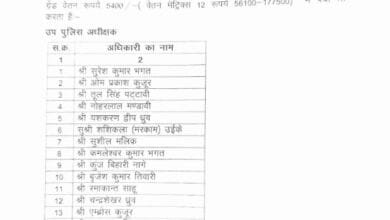 ग्रेड वेतन रूपये 5400 /-( वेतन मैट्रिक्स 12 रूपये 56100-177500)
करता है:-
उप पुलिस अधीक्षक
स.क. अधिकारी का नाम
1 2
1 श्री सुरेश कुमार भगत
2 श्री ओम प्रकाश कुजूर
3 श्री तूल सिंह पट्टावी
4 श्री नोहरलाल मण्डावी
5 श्री यशकरण द्वीप ध्रुव
6 सुश्री शशिकला (मरकाम) उईके
7 श्री सुशील मलिक
8 श्री कमलेश्वर कुमार भगत
9 श्री कुंज बिहारी नागे
10 श्री बृजेश कुमार तिवारी
11 श्री रमाकान्त साहू
12 श्री चन्द्रशेखर ध्रुव
13 श्री एम्ब्रोस कुजूर